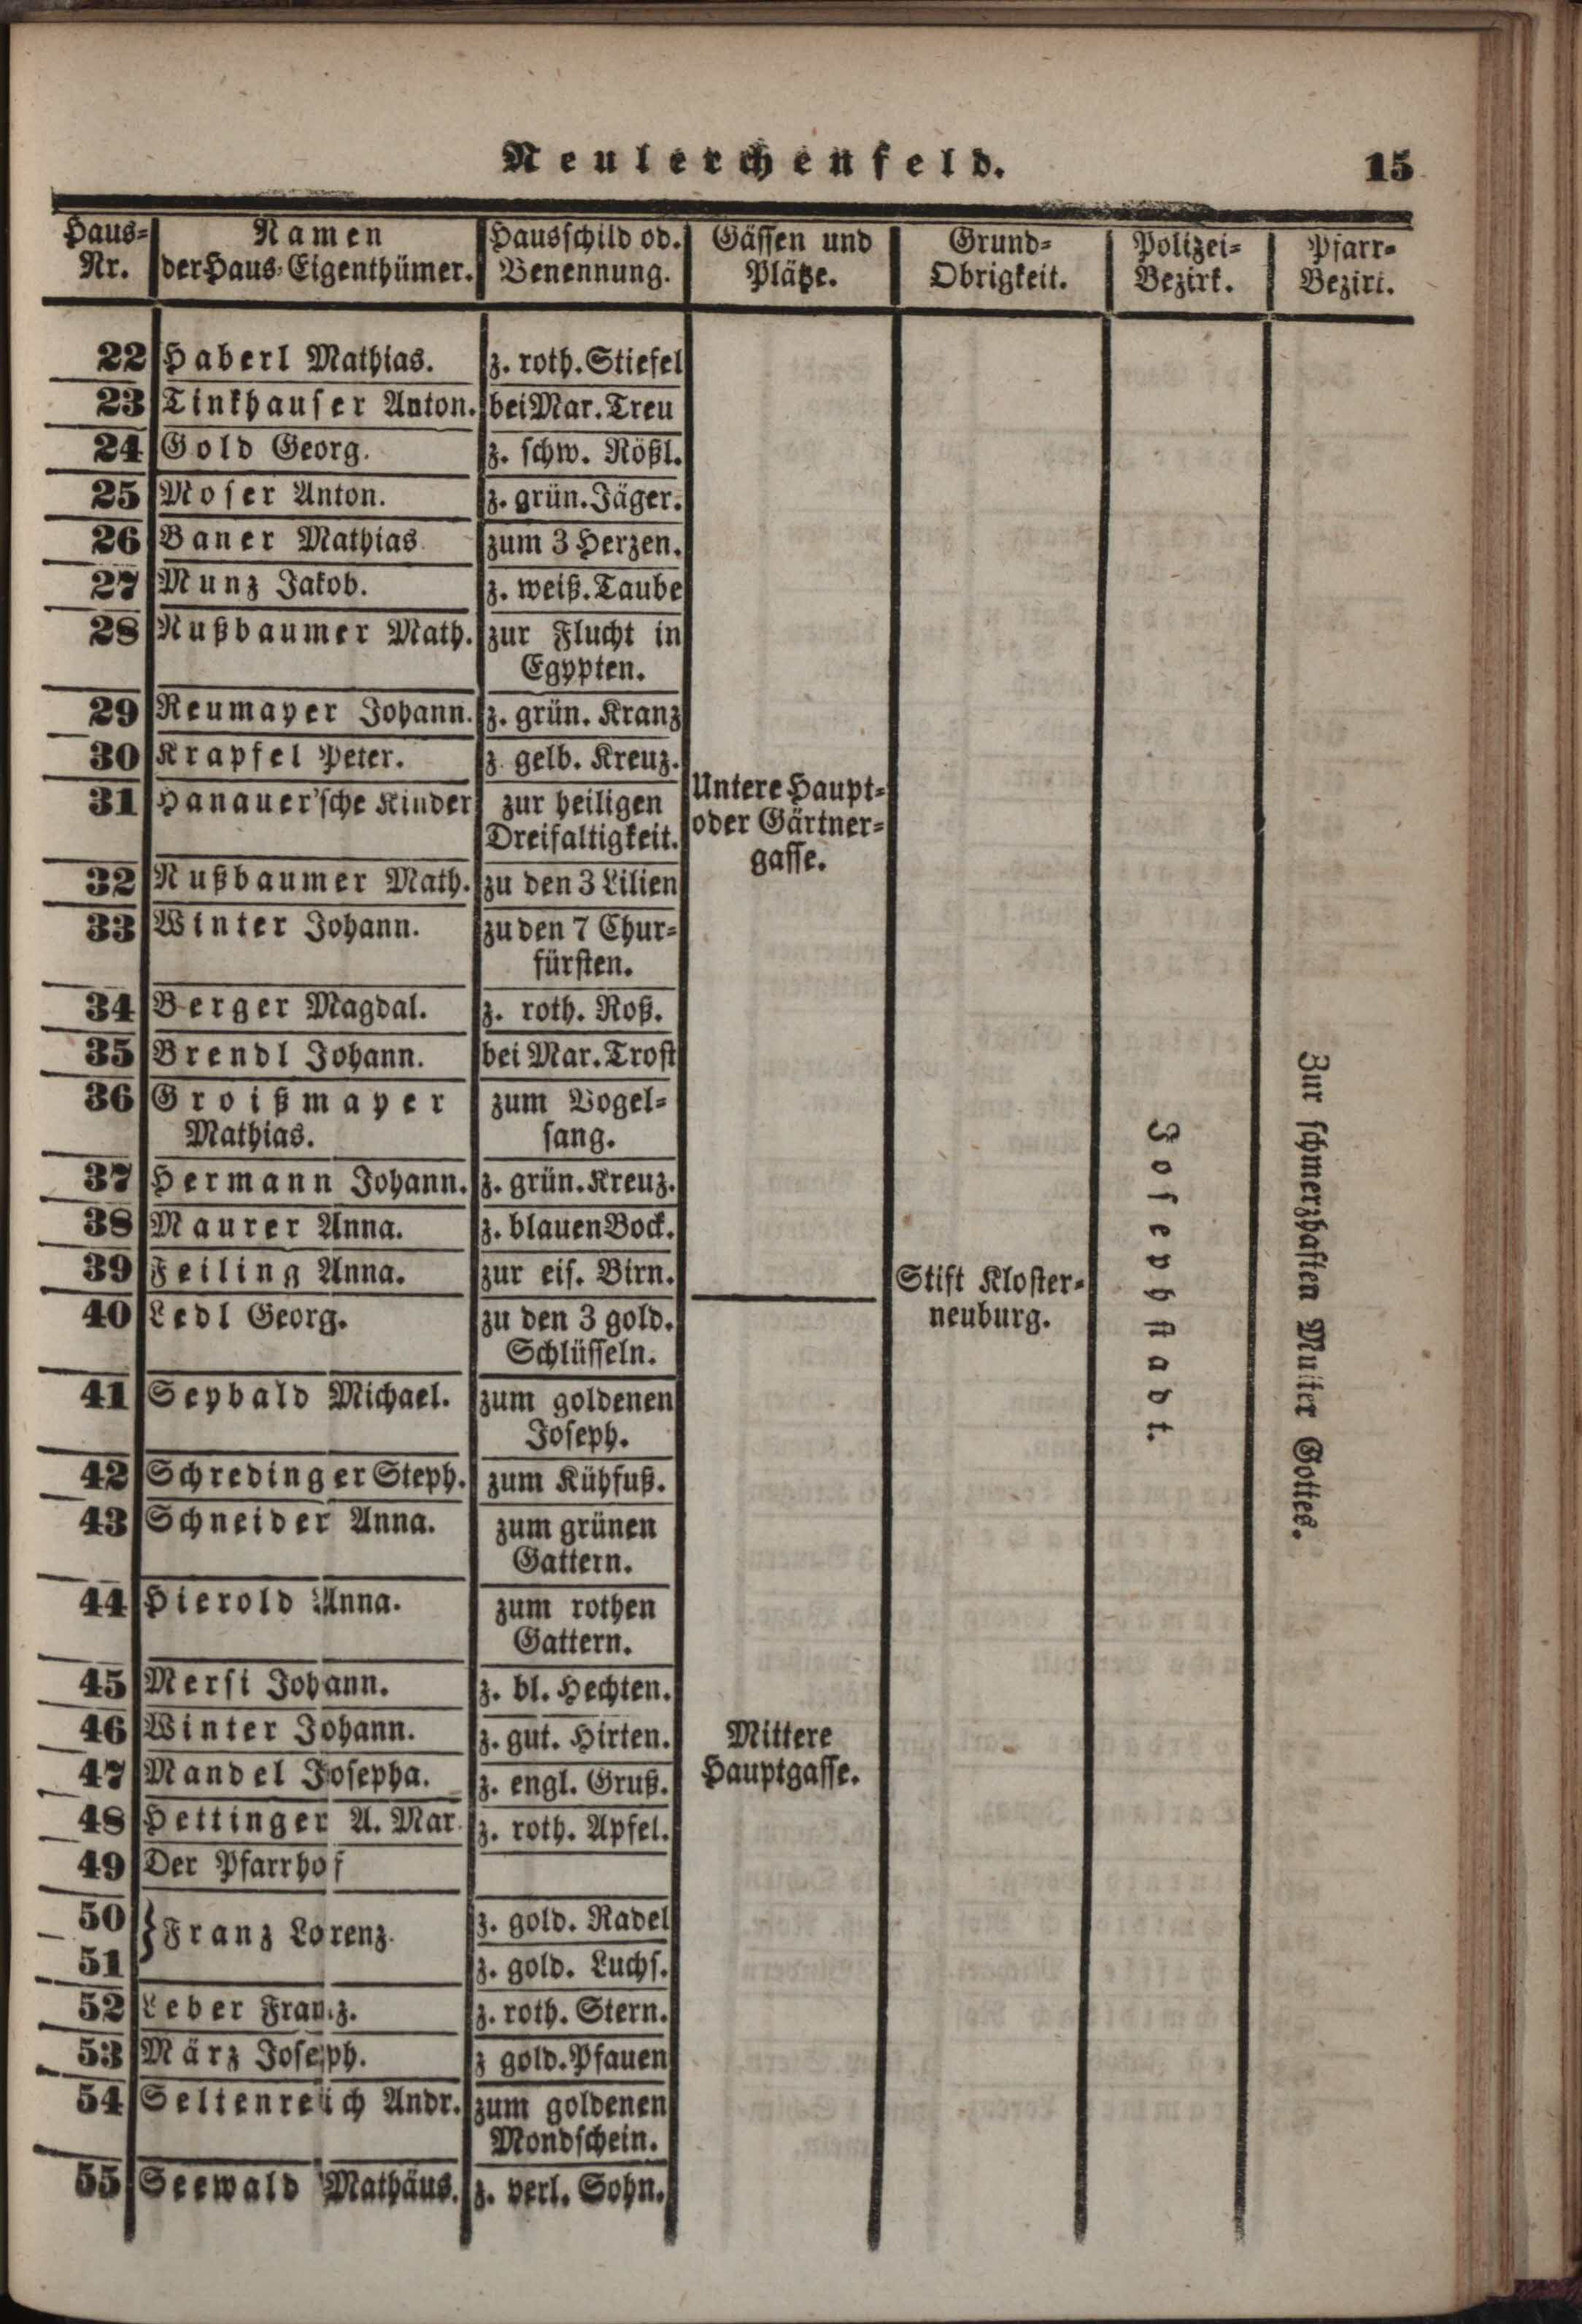 Neulerchenfeld. 15
Haus- Nr. | Namen der Haus-Eigenthümer. | Hausschild od. Benennung. | Gässen und Plätze. | Grund- Obrigkeit. | Polizei- Bezirk. | Pfarr- Bezirk.
22 Haberl Mathias. z. roth. Stiefel
23 Tinkhauser Anton. bei Mar. Treu
24 Gold Georg. z. schw. Rößl.
25 Moser Anton. z. grün. Jäger.
26 Baner Mathias zum 3 Herzen.
27 Munz Jakob. z. weiß. Taube
28 Nußbaumer Math. zur Flucht in
Egypten.
29 Neumayer Johann. z. grün. Kranz
30 Krapfel Peter. z. gelb. Kreuz.
31 Hanauer'sche Kinder zur heiligen
Dreifaltigkeit.
Untere Haupt-
oder Gärtner-
gasse.
32 Nußbaumer Math. zu den 3 Lilien
33 Winter Johann. zu den 7 Chur-
fürsten.
34 Berger Magdal. z. roth. Roß.
35 Brendl Johann. bei Mar. Trost
36 Groißmayer zum Vogel-
Mathias. sang.
37 Hermann Johann. z. grün. Kreuz.
38 Maurer Anna. z. blauen Bock.
39 Feiling Anna. zur eis. Birn.
40 Ledl Georg. zu den 3 gold.
Schlüsseln.
Stift Kloster-
neuburg.
Josephstadt.
Zur schmerzhaften Mutter Gottes.
41 Seybald Michael. zum goldenen
Joseph.
42 Schredinger Steph. zum Kühfuß.
43 Schneider Anna. zum grünen
Gattern.
44 Hierold Anna. zum rothen
Gattern.
45 Mersi Johann. z. bl. Hechten.
46 Winter Johann. z. gut. Hirten.
47 Mandel Josepha. z. engl. Gruß.
Mittere
Hauptgasse.
48 Hettinger A. Mar. z. roth. Apfel.
49 Der Pfarrhof
50 } Franz Lorenz. z. gold. Radel
51 z. gold. Luchs.
52 Leber Franz. z. roth. Stern.
53 März Joseph. z gold. Pfauen
54 Seltenreich Andr. zum goldenen
Mondschein.
55 Seewald Mathäus. z. verl. Sohn.